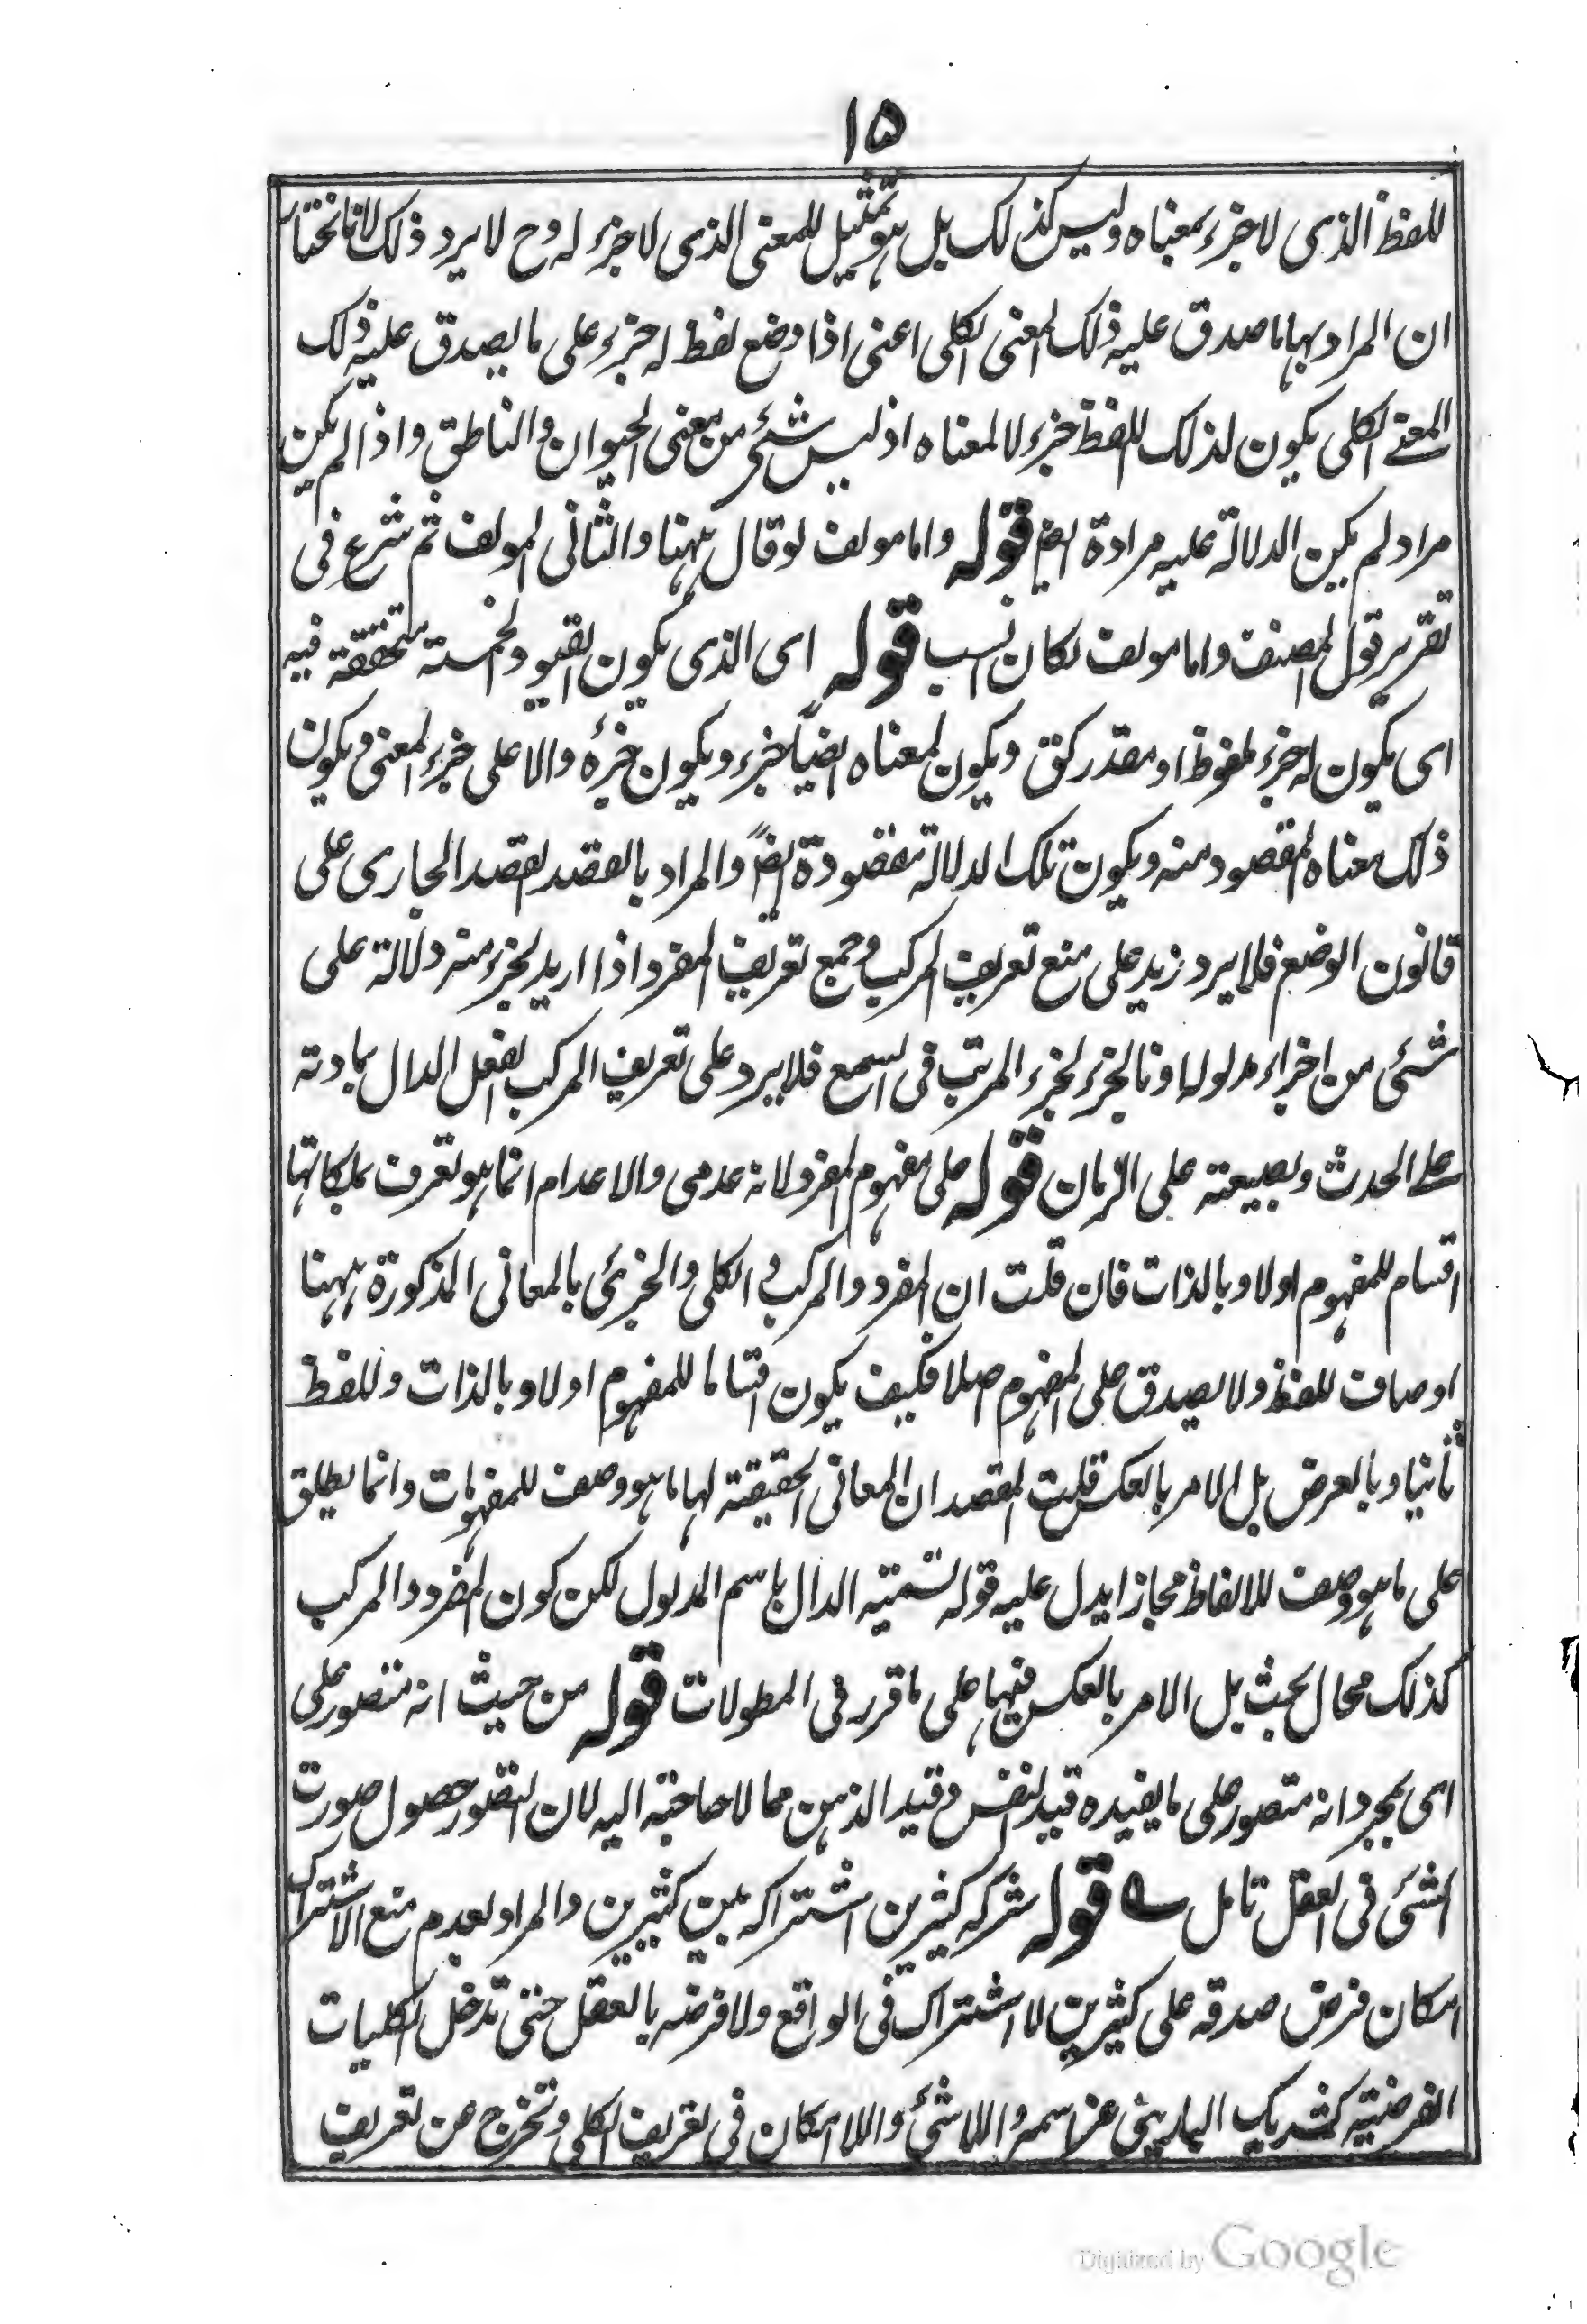 ١٥
للفظ الذى لا جزء بمعناه وليس كذلك بل هو تمثيل للمعنى الذى لا جزء له وح لا يرد ذلك لانا نختار
ان المراد بها ما صدق عليه ذلك المعنى الكلى اعنى اذا وضع لفظ له جزء على ما يصدق عليه ذلك
المعنے الكلى يكون لذلك اللفظ جزء لا لمعناه اذ ليس شئى من معنى الحيوان والناطق واذا لم يكن
مراد لم يكن الدلالة عليه مرادة ايض قوله واما مولف لو قال ههنا والثانى المولف ثم شرع فى
تقرير قول المصنف واما مولف لكان انسب قوله اى الذى يكون القيود الخمسة متحققة فيه
اى يكون له جزء ملفوظ او مقدر كق ويكون لمعناه ايضاً جزء ويكون جزءه دالا على جزء المعنى ويكون
ذلك معناه المقصود منه ويكون تلك الدلالة مقصودة ايضً والمراد بالقصد القصد الجارى على
قانون الوضع فلا يرد زيد على منع تعريف المركب وجمع تعريف المفرد اذا اريد لجزء منه دلالة على
شئى من اجزاء مدلولها ونا لجزء الجزء المرتب فى السمع فلا يرد على تعريف المركب الفعل الدال بمادته
علے الحدث وبصيغته على الزمان قوله على مفهوم المفرد لانه عدمى والاعدام انما هو تعرف بملكاتها
اقسام للمفهوم اولا وبالذات فان قلت ان المفرد والمركب والكلى والجزئى بالمعانى المذكورة ههنا
اوصاف للفظ ولا يصدق على المفهوم اصلا فكيف يكون اقساما للمفهوم اولا وبالذات وللفظ
ثانيا وبالعرض بل الامر بالعكس قلت المقصد ان المعانى الحقيقة لها ما هو وصف للمفهومات وانما يطلق
على ما هو وصف للالفاظ مجازا يدل عليه قوله تسمية الدال باسم المدلول لكن كون المفرد والمركب
كذلك محال بحث بل الامر بالعكس فيها على ما قرر فى المطولات قوله من حيث انه متصور على
اى بمجرد انه متصور على ما يفيده قيد النفس وقيد الذهن مما لا حاجة اليه لان التصور حصول صورت
الشئى فى العقل تامل قوله شركة كثيرين اشتراكه بين كثيرين والمراد بعدم منع الاشتراك
امكان فرض صدقه على كثيرين لا اشتراك فى الواقع ولا فرضه بالعقل حتى تدخل الكليات
الفرضية كشريك البارى عز اسمه واللاشئ واللا امكان فى تعريف الكلى وتخرج عن تعريف
Digitized by Google